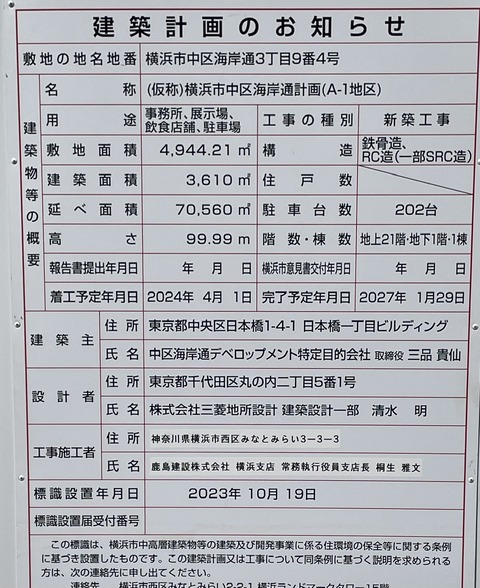 建築計画のお知らせ
敷地の地名地番 横浜市中区海岸通3丁目9番4号
建築物等の概要
名称 (仮称)横浜市中区海岸通計画(A-1地区)
用途 事務所、展示場、飲食店舗、駐車場 工事の種別 新築工事
敷地面積 4,944.21 ㎡ 構造 鉄骨造、RC造(一部SRC造)
建築面積 3,610 ㎡ 住戸数
延べ面積 70,560 ㎡ 駐車台数 202台
高さ 99.99 m 階数・棟数 地上21階・地下1階・1棟
報告書提出年月日 年 月 日 横浜市意見書交付年月日 年 月 日
着工予定年月日 2024年 4月 1日 完了予定年月日 2027年 1月29日
建築主 住所 東京都中央区日本橋1-4-1 日本橋一丁目ビルディング
氏名 中区海岸通デベロップメント特定目的会社 取締役 三品 貴仙
設計者 住所 東京都千代田区丸の内二丁目5番1号
氏名 株式会社三菱地所設計 建築設計一部 清水 明
工事施工者 住所 神奈川県横浜市西区みなとみらい3-3-3
氏名 鹿島建設株式会社 横浜支店 常務執行役員支店長 桐生 雅文
標識設置年月日 2023年 10月 19日
標識設置届受付番号
この標識は、横浜市中高層建築物等の建築及び開発事業に係る住環境の保全等に関する条例
に基づき設置したものです。この建築計画又は工事について同条例に基づく説明を求められる
方は、次の連絡先に申し出てください。
連絡先 横浜市西区みなとみらい2-2-1 横浜ランドマークタワー15階